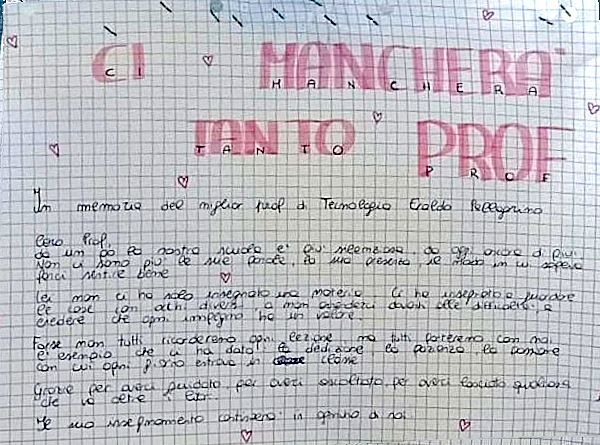 CI MANCHERÀ
C I M A N C H E R A
TANTO PROF
T A N T O P R O F
In memoria del miglior prof di Tecnologia Eraldo Pellegrino
Caro Prof,
da un po' la nostra scuola è più silenziosa, da ogni
Non ci sono più le sue parole, la sua presenza, il modo in cui sapeva
farci sentire bene
Lei non ci ha solo insegnato una materia. Ci ha insegnato a guardare
le cose con occhi diversi a non davanti alle difficoltà, a
credere che ogni impegno ha un valore.
Forse non tutti ricorderemo ogni lezione, ma tutti porteremo con noi
l'esempio che ci ha dato: la dedizione, la pazienza, la passione
con cui ogni giorno entrava in classe
Grazie per averci guidato, per averci ascoltato, per averci lasciato qualcosa
che va oltre i
Il suo insegnamento continuerà in ognuno di noi